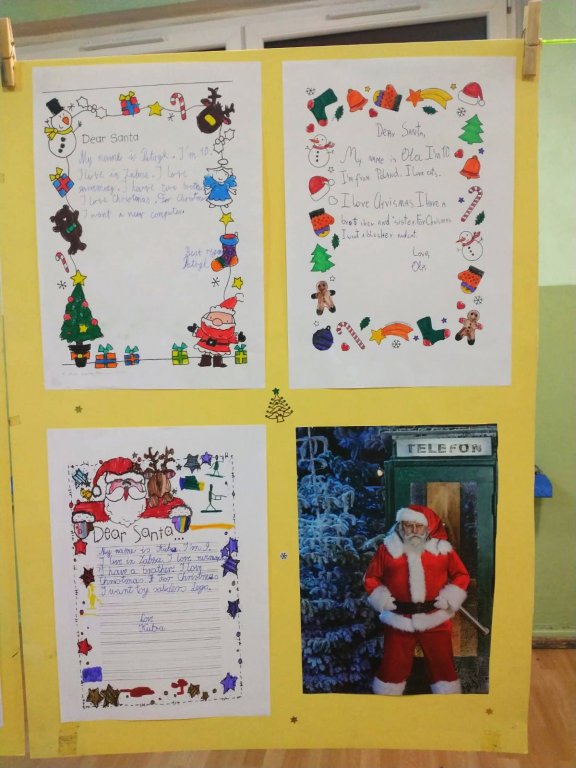 Dear Santa
My name is Patryk. I'm 10.
I live in Zabrze. I love
swimming. I have two
I love Christmas. For Christmas
I want a new computer.
Best
Patryk
Dear Santa,
My name is Ola. I'm 10
I'm from Poland. I love cats.
I love Chrismas. I have a
brother and sister. For Christmas
I want
Love,
Ola
Dear Santa...
My name is Kuba. I'm
I live in Zabrze. I love
I have a brother. I love
Christmas. For Christmas
I want toy soliders Lego.
Love
Kuba
TELEFON